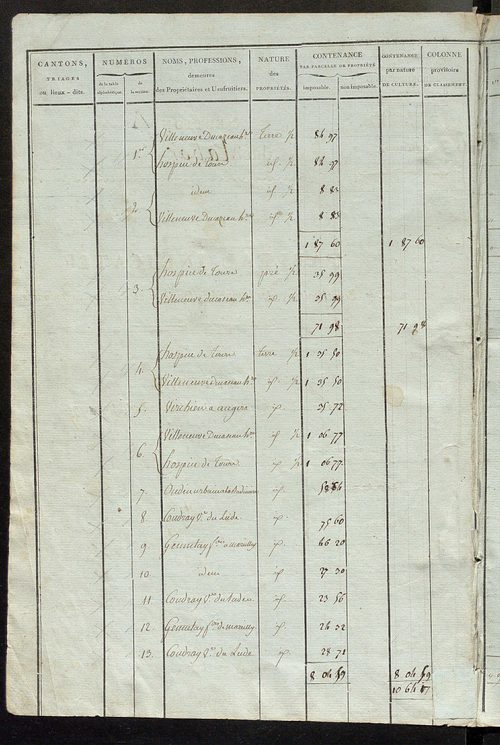 CANTONS, TRIAGES ou lieux-dits.
NUMÉROS
de la table alphabétique.
de la section.
NOMS, PROFESSIONS, demeures des Propriétaires et Usufruitiers.
NATURE des PROPRIÉTÉS.
CONTENANCE PAR PARCELLE DE PROPRIÉTÉ
imposable.
non imposable.
CONTENANCE par nature DE CULTURE.
COLONNE provisoire DE CLASSEMENT.
1. Villeneuve Ducazeau h. terre ½ 86 97
hospice de Tours id. ½ 84 97
2. idem id. ½ 8 83
Villeneuve Ducazeau h. id. ½ 8 83
1 87 60 1 87 60
3. hospice de Tours pré ½ 35 99
Villeneuve ducazeau h. id. ½ 35 99
71 98 71 98
4. hospice de Tours terre ½ 1 35 50
Villeneuve ducazeau h. id. ½ 1 35 50
5. a angers id. 35 72
6. Villeneuve Ducazeau h. id. ½ 1 06 77
hospice de Tours id. ½ 1 06 77
7. id.
8. Coudray V. du Lude id. 75 60
9. id. 66 20
10. idem id. 27 30
11. Coudray V. du Lude id. 23 56
12. id. 26 32
13. Coudray V. du Lude id. 28 71
8 04 59 8 04 59
10 64 17